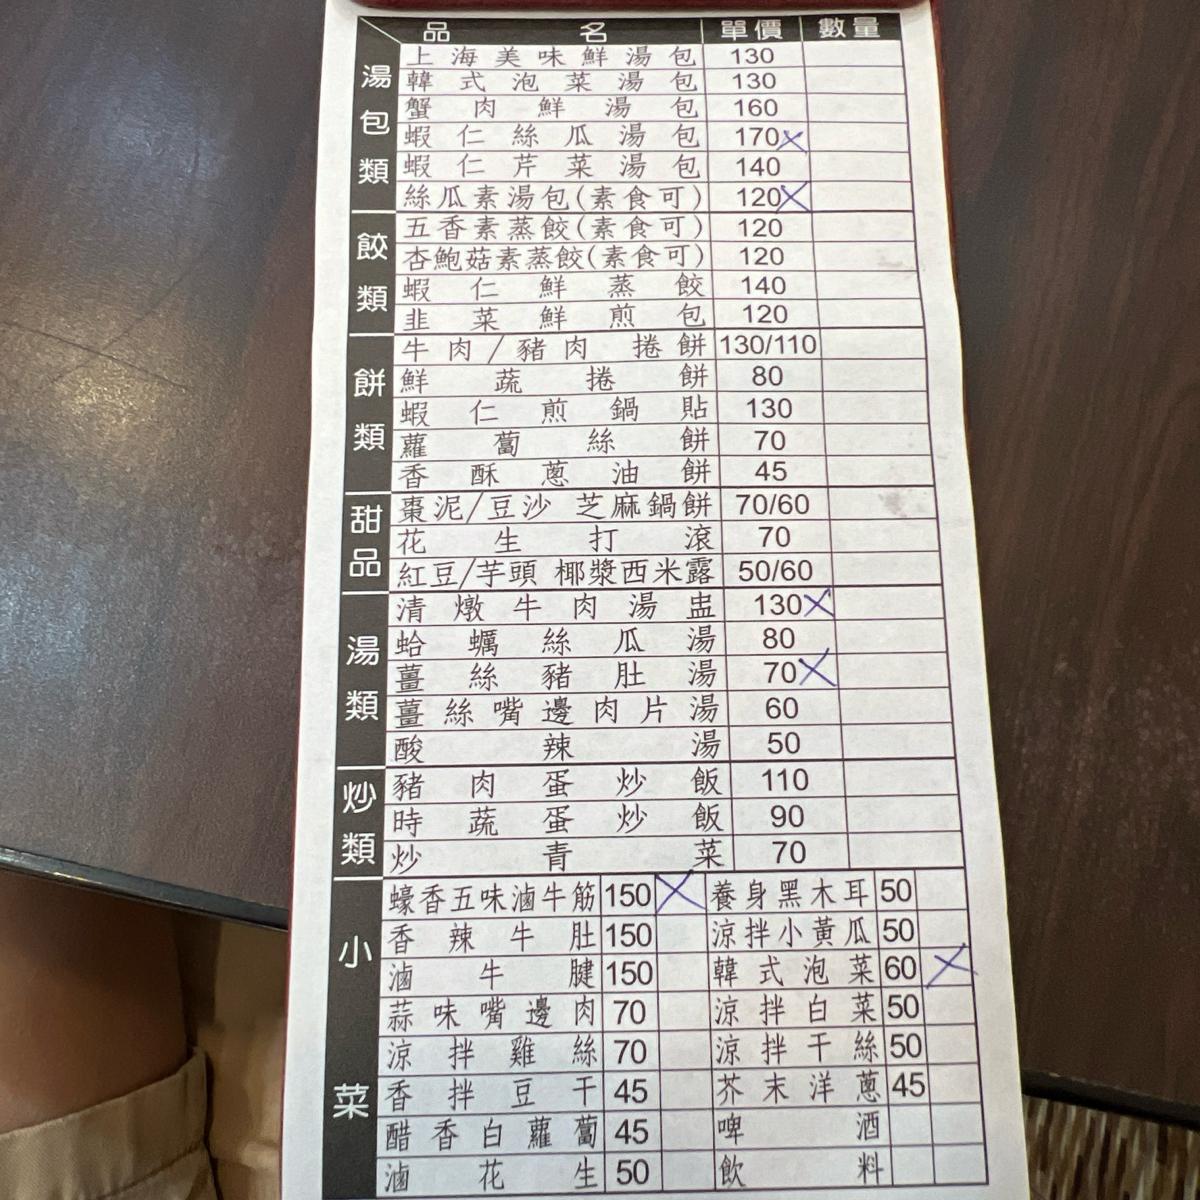 品名 單價 數量
湯包類
上海美味鮮湯包 130
韓式泡菜湯包 130
蟹肉鮮湯包 160
蝦仁絲瓜湯包 170 X
蝦仁芹菜湯包 140
絲瓜素湯包(素食可) 120 X
餃類
五香素蒸餃(素食可) 120
杏鮑菇素蒸餃(素食可) 120
蝦仁鮮蒸餃 140
韭菜鮮煎包 120
餅類
牛肉/豬肉 捲餅 130/110
鮮蔬捲餅 80
蝦仁煎鍋貼 130
蘿蔔絲餅 70
香酥蔥油餅 45
甜品
棗泥/豆沙 芝麻鍋餅 70/60
花生打滾 70
紅豆/芋頭 椰漿西米露 50/60
湯類
清燉牛肉湯盅 130 X
蛤蠣絲瓜湯 80
薑絲豬肚湯 70 X
薑絲嘴邊肉片湯 60
酸辣湯 50
炒類
豬肉蛋炒飯 110
時蔬蛋炒飯 90
炒青菜 70
小菜
蠔香五味滷牛筋 150 X 養身黑木耳 50
香辣牛肚 150 涼拌小黃瓜 50
滷牛腱 150 韓式泡菜 60 X
蒜味嘴邊肉 70 涼拌白菜 50
涼拌雞絲 70 涼拌干絲 50
香拌豆干 45 芥末洋蔥 45
醋香白蘿蔔 45 啤酒
滷花生 50 飲料